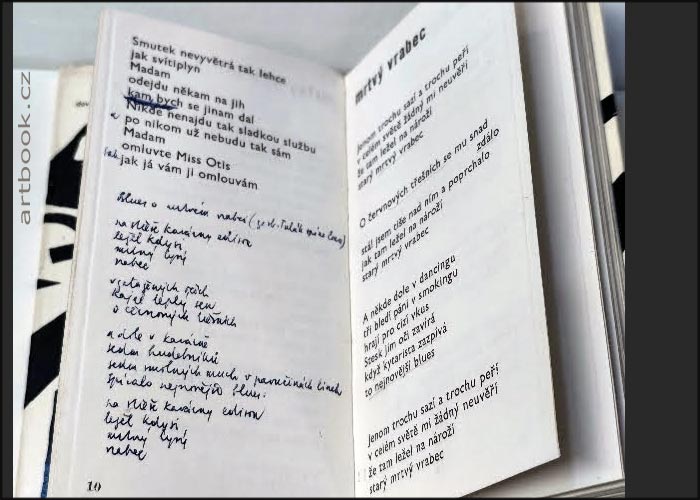 artbook.cz
Smutek nevyvětrá tak lehce
jak svítiplyn
Madam
odejdu někam na jih
kam bych se jinam dal
Nikde nenajdu tak sladkou službu
a po nikom už nebudu tak sám
Madam
omluvte Miss Otis
jak já vám ji omlouvám
Blues o mrtvém vrabci (ze sb. Tulák
na střeše kavárny edison
ležel kdysi
mrtvý
vrabec
o červnových třešních
a dole v kavárně
sedm hudebníků
sedm smutných much v pavučinách linek
zpívalo nejnovější blues:
na střeše kavárny edison
ležel kdysi
mrtvý
vrabec
10
mrtvý vrabec
Jenom trochu sazí a trochu peří
v celém světě žádný mi neuvěří
že tam ležel na nároží
starý mrtvý vrabec
O červnových třešních se mu snad
zdálo
stál jsem tiše nad ním a poprchálo
jak tam ležel na nároží
starý mrtvý vrabec
A někde dole v dancingu
tři bledí páni v smokingu
hrají pro cizí vkus
Stesk jim oči zavírá
když kytarista zazpívá
to nejnovější blues
Jenom trochu sazí a trochu peří
v celém světě mi žádný neuvěří
že tam ležel na nároží
starý mrtvý vrabec